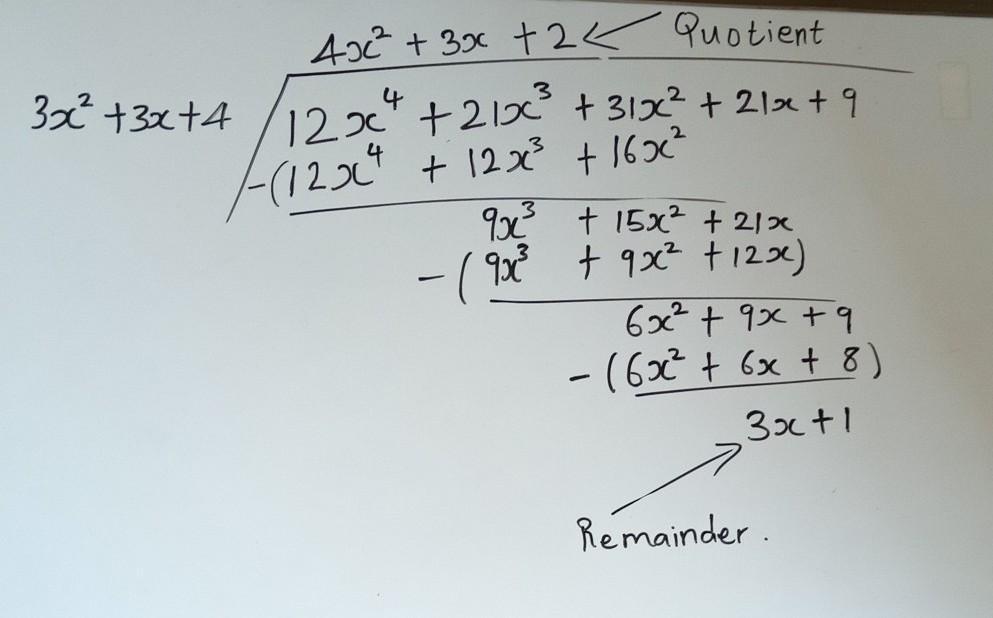 4x² + 3x + 2 ← Quotient
3x² + 3x + 4 12x⁴ + 21x³ + 31x² + 21x + 9
-(12x⁴ + 12x³ + 16x²
9x³ + 15x² + 21x
-(9x³ + 9x² + 12x)
6x² + 9x + 9
-(6x² + 6x + 8)
3x + 1
Remainder.